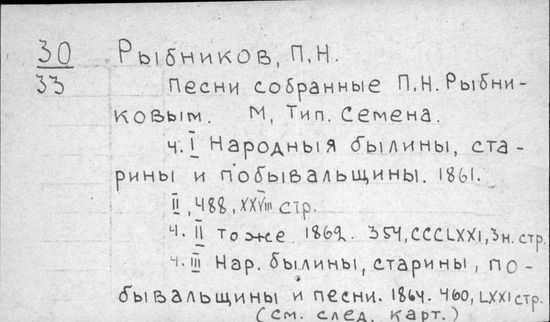 30 Рыбников, П.Н.
33 Песни собранные П.Н. Рыбни-
ковым. М, Тип. Семена.
ч. I Народныя былины, ста-
рины и побывальщины. 1861.
II, 488, XXVIII стр.
ч. II тоже 1862. 354, CCCLXXI, 3н. стр.
ч. III Нар. былины, старины, по-
бывальщины и песни. 1864. 460, LXXI стр.
(см. след. карт.)